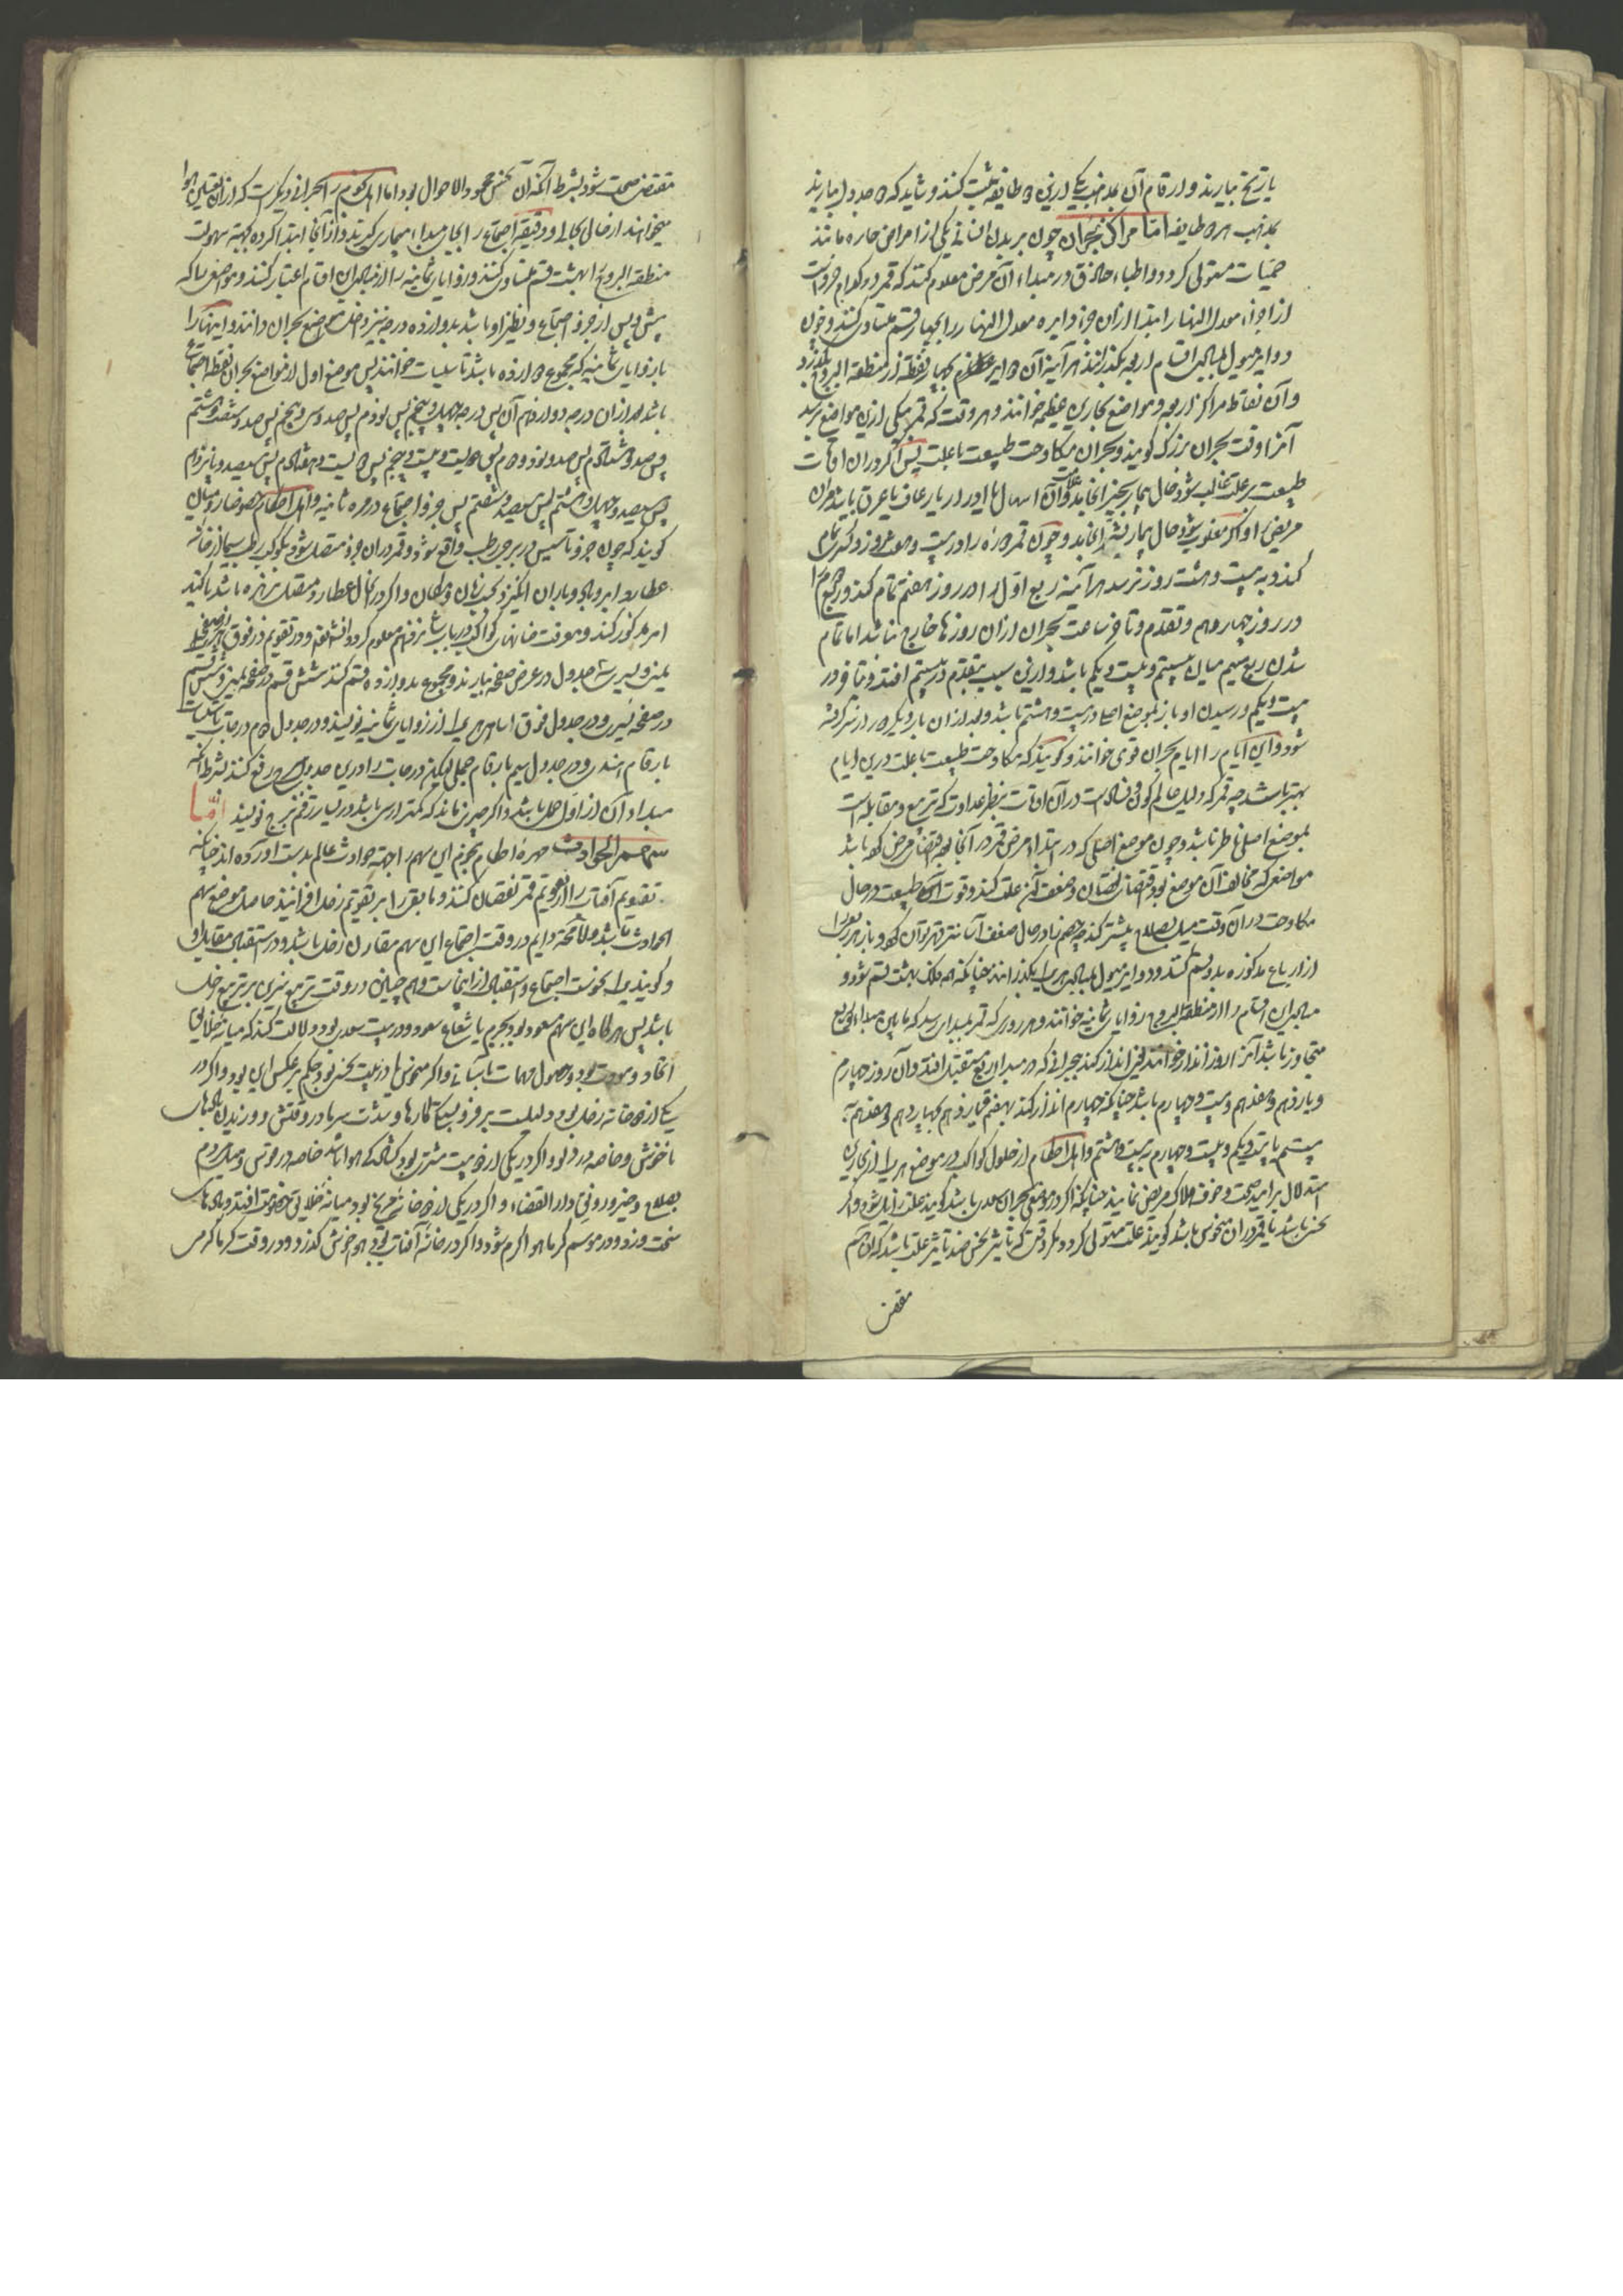 بتاریخ بیارند و ارقام آن بمذهب یکی ازین دو طایفه ثبت کنند و شاید که دو جدول بیارند
بمذهب هر دو طایفه اما مراکز بحران چون بر بدن انسانی یکی از امراض حاره مانند
حمیات مستولی کردد و اطباء حاذق در مبداء آن مرض معلوم کنند که قمر در کدام جزوست
از اجزاء معدل النهار ابتدا ازان جزو دایره معدل النهار را بچهار قسم متساوی کنند و چون
دوایر میول بمبادی اقسام اربعه بگذرانند هر آینه آن دوایر عظام بچهار نقطه از منطقة البروج بگذرد
و آن نقاط مراکز اربعه و مواضع بحارین عظیمه خوانند و هر وقت که قمر بیکی ازین مواضع رسد
آنرا وقت بحران بزرک کویند و بحران مکاوحت طبیعت با علت پس اکر دران اوقات
طبیعت بر علت غالب شود حال بیمار بخیر انجامد و آن اسهال یا ادرار یا رعاف یا عرق یابند دران
مریض و اکر مغلوب شود حال بیمار بشر انجامد و چون قمر دوره را در بیست و هفت روز و کسری تمام
کند و به بیست و هشت روز نرسد هر آینه ربع اول را در روز هفتم تمام کند و ربع دوم را
در روز چهاردهم و تقدم و تاخر ساعت بحران ازان روزها خارج نباشد اما تمام
شدن ربع سیم میان بیستم و بیست و یکم باشد و ازین سبب بتقدم در بیستم افتد و بتاخر در
بیست و یکم و رسیدن او باز بموضع اصلی در بیست و هشتم باشد و بعد ازان بار دیکر دور از سر کرفته
شود و این ایام را ایام بحران قوی خوانند و کویند که مکاوحت طبیعت با علت درین ایام
بهتر باشد چه قمر که دلیل عالم کون و فسادست در آن اوقات بنظر عداوت که تربیع و مقابله است
بموضع اصلی ناظر باشد و چون موضع اصلی که در ابتداء مرض قمر در آنجا بوده مقتضی مرض بوده باشد
مواضعی که مخالف آن موضع بود مقتضی نقصان و ضعف آن علت کند و قوت طبیعت در حال
مکاوحت در آن وقت میل بصلاح بیشتر کند چه خصم را در حال ضعف آسانتر قهر توان کرد و باز هر ربعی را
از ارباع مذکوره بدو قسم کنند و دوایر میول بمبادی هر یک بگذرانند چنانکه همه فلک بهشت قسم شود و
مبادی این اقسام را از منطقة البروج زوایای ثمانیه خوانند و هر روزی که قمر بمبدای رسد که مابین مبداء دو ربع
متجاوز باشد آنرا روز انذار خوانند یعنی انذار کند ببحرانی که در مبداء ربع مستقبل افتد و آن روز چهارم
و یازدهم و هفدهم و بیست و چهارم باشد چنانکه چهارم انذار کند بهفتم و یازدهم بچهاردهم و هفدهم به
بیستم یا بیست و یکم و بیست و چهارم به بیست و هشتم و اهل احکام از حلول کواکب در موضع هر یک از بحارین
استدلال بر امید صحت و خوف هلاک مریض نمایند چنانکه اکر در موضع بحران سعدی باشد کویند علت زایل شود و اکر
نحسی باشد یا قمر دران منحوس باشد کویند علت مستولی کردد مکر وقتی که تاثیر نحس ضد تاثیر علت باشد که آن هم
مقتضی
مقتضی صحت شود بشرط آنکه آن نحس محمود الاحوال بود اما اهل نجوم را بحرانی دیکرست که ازان تغییر هوا
میخواهند از حال بحالی و دقیقه اجتماع را بجای مبداء بیماری کیرند و از آنجا ابتدا کرده بجهت سهولت
منطقة البروج را بهشت قسم متساوی کنند و زوایای ثمانیه را از مبادی این اقسام اعتبار کنند و مواضعی را که
پیش و پس از جزو اجتماع و نظیر او باشد بدوازده درجه نیز داخل مواضع بحران دانند و اینها را
با زوایای ثمانیه که مجموع دوازده باشد تاسیسات خوانند پس موضع اول از مواضع بحران نقطه اجتماع
باشد بعد ازان درجه دوازدهم آن پس درجه چهل و پنجم پس نودم پس صد و سی و پنجم پس صد و شصت و هشتم
پس صد و هشتادم پس صد و نود و دوم پس دویست و بیست و پنجم پس دویست و هفتادم پس سیصد و پانزدهم
پس سیصد و چهل و هشتم پس سیصد و شصتم پس جزو اجتماع در مره ثانیه و اهل احکام خصوصا رومیان
کویند که چون جزو تاسیس در برجی رطب واقع شود و قمر دران جزو متصل شود بکوکب رطب سیما در خانه
عطارد ابر و باد و باران انکیزد و کذا و اکر در آن حال عطارد متصل بزهره باشد تاکید
امر مذکور کند و معرفت خانهای کواکب در باب نوزدهم معلوم کردد انشاالله و در تقویم در فوق هر صفحه
یمنی و یسری سه جدول در عرض صفحه بیارند و مجموع بدوازده قسم کنند شش قسم در صفحه یمنی و شش قسم
در صفحه یسری و در جدول فوق اسامی هر یک از زوایای ثمانیه نویسند و در جدول دوم درجات تاسیسات
بارقام هند و در جدول سیم بارقام جمل و لیکن درجات را درین جدول ببروج رفع کنند بشرط آنکه
مبداء آن از اول حمل باشد و اکر چیزی نماند که کمتر از سی باشد در یسار رقم برج نویسند اما
سهم الحوادث مهره احکام نجوم این سهم را جهت حوادث عالم بدست آورده اند چنانکه
تقویم آفتاب را از تقویم قمر نقصان کنند و مابقی را بر تقویم زحل افزایند حاصل موضع سهم
الحوادث باشد و لامحاله دایم در وقت اجتماع این سهم مقارن زحل باشد و در استقبال مقابل او
و کویند بدایه نحوست اجتماع و استقبال از اینجاست و هم چنین در وقت تربیع نیرین بر تربیع زحل
باشد پس هرکاه این سهم مسعود بود بجرم یا شعاع سعود و در بیت سعدی بود دلالت کند که میانه خلایق
اتحاد و مودت بود و حصول مهمات بآسانی و اکر منحوس یا در بیت نحسی بود حکم بر عکس این بود و اکر در
یکی از دو خانه زحل بود دلیلست بر فروبستکی کارها و شدت سرما در وقتش و وزیدن بادهای
ناخوش و خاصه در دلو و اکر در یکی از دو بیت مشتری بود کشادکی هوا باشد خاصه در قوس و میل مردم
بصلاح و خیر و رونق دار القضاء و اکر در یکی از دو خانه مریخ بود میانه خلایق خصومت افتد و بادهای
سخت وزد و در موسم کرما هوا کرم شود و اکر در خانه آفتاب بود هوا خوش کذرد و در وقت کرما کرمی